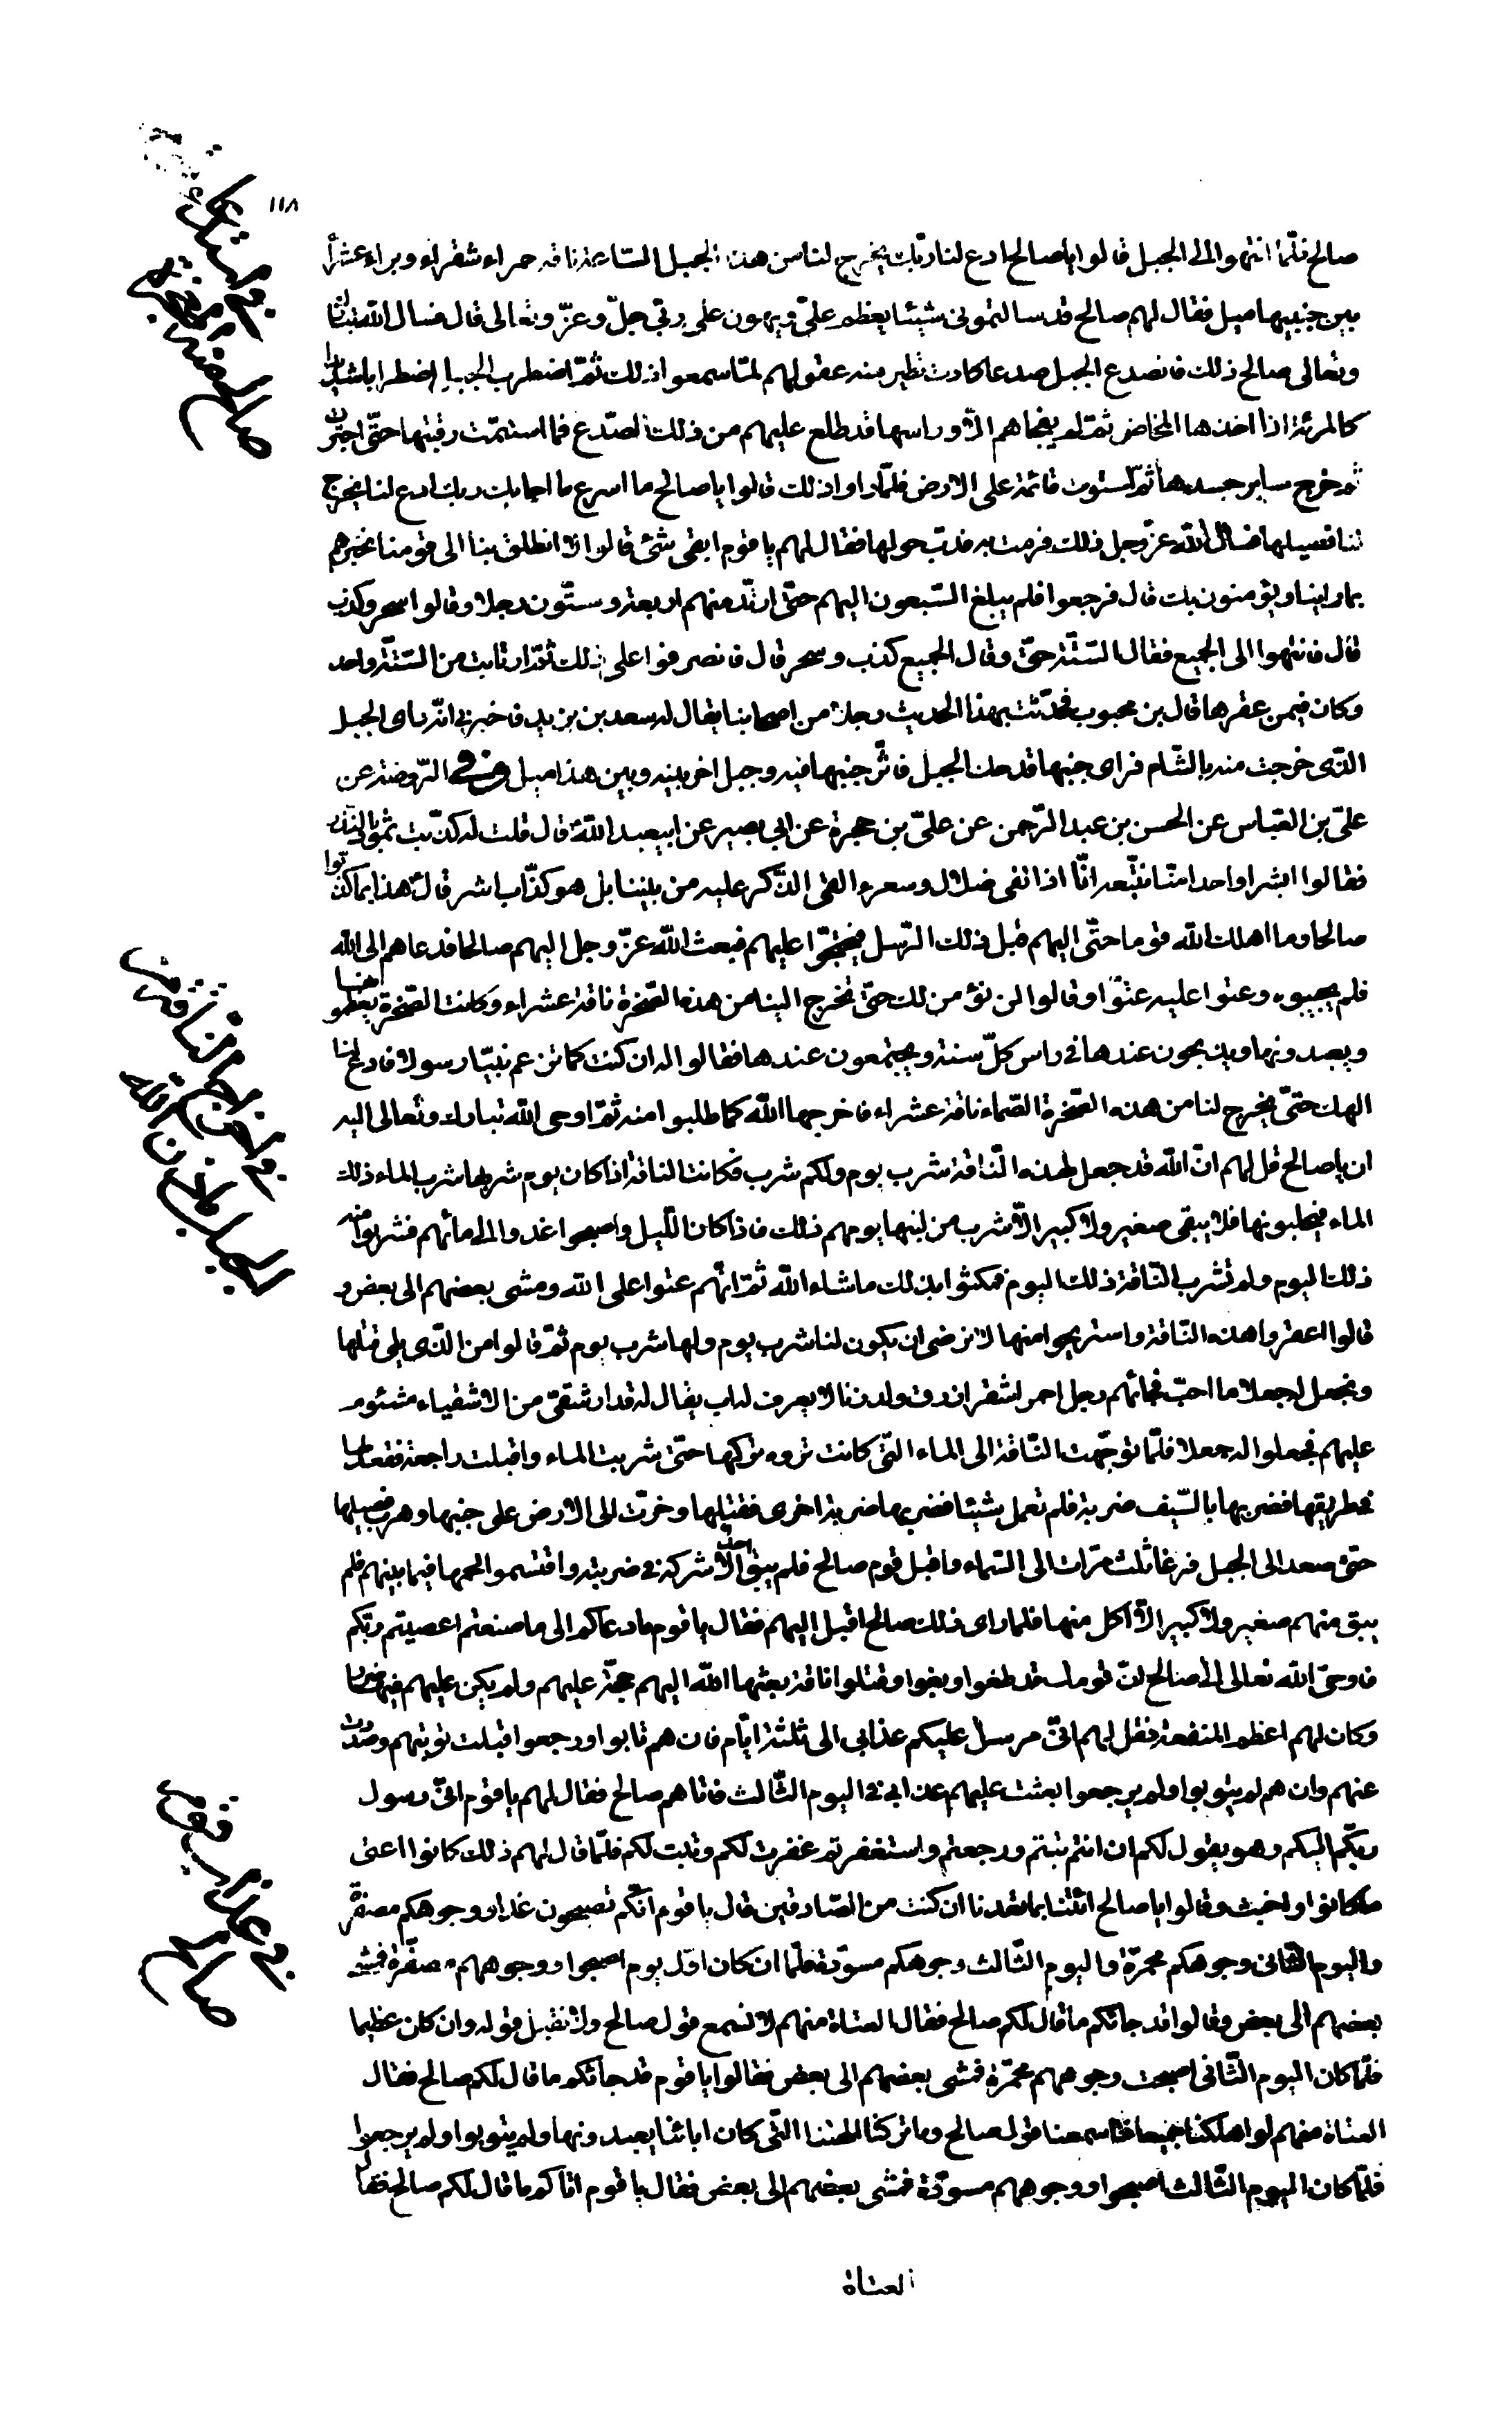 ١١٨
صالح فلمّا انتهوا الى الجبل قالوا يا صالح ادع لنا ربّك يخرج لنا من هذا الجبل السّاعة ناقة حمراء شقراء وبراء عشراء
بين جنبيها ميل فقال لهم صالح قد سالتمونى شيئا يعظم علىّ ويهون على ربّي جلّ وعزّ وتعالى قال فسال الله تبارك
وتعالى صالح ذلك فانصدع الجبل صدعا كادت تطير منه عقولهم لمّا سمعوا ذلك ثمّ اضطرب الجبل اضطرابا شديدا
كالمرئة اذا اخذها المخاض ثمّ لم يفجاهم الّا وراسها قد طلع عليهم من ذلك الصّدع فما استتمّت رقبتها حتّى اجترّت
ثم خرج ساير جسدها ثمّ استوت قائمة على الارض فلمّا راوا ذلك قالوا يا صالح ما اسرع ما اجابك ربك ادع لنا يخرج
لنا فصيلها فسال الله عزّ وجل ذلك فرمت به فدبّ حولها فقال لهم يا قوم ابقى شئ قالوا لا انطلق بنا الى قومنا نخبرهم
بما راينا ويؤمنون بك قال فرجعوا فلم يبلغ السّبعون اليهم حتّى ارتدّ منهم اربعة وستّون رجلا وقالوا سحر وكذب
قال فانتهوا الى الجميع فقال السّتّة حقّ وقال الجميع كذب وسحر قال فانصرفوا على ذلك ثمّ ارتاب من السّتّة واحد
وكان فيمن عقرها قال بن محبوب فحدّثت بهذا الحديث رجلا من اصحابنا يقال له سعد بن يزيد فاخبرنى انّه راى الجبل
الّذى خرجت منه بالشّام فراى جنبها قد حكّ الجبل فاثّر جنبها فيه وجبل اخر بينه وبين هذا ميل وفى الرّوضة عن
علىّ بن العبّاس عن الحسن بن عبد الرّحمن عن علىّ بن حمزة عن ابي بصير عن ابيعبد اللهؑ قال قلت له كذّبت ثمود بالنّذر
فقالوا ابشرا واحدا منّا نتّبعه انّا اذا لفى ضلال وسعر ءالقى الذّكر عليه من بيننا بل هو كذّاب اشر قالؑ هذا بما كذّبوا
صالحا وما اهلك الله قوما حتّى اليهم قبل ذلك الرّسل فيحتجّوا عليهم فبعث الله عزّ وجل اليهم صالحا فدعاهم الى الله
فلم يجيبوه وعتوا عليه عتوّا وقالوا لن نؤمن لك حتّى تخرج الينا من هذه الصّخرة ناقة عشراء وكانت الصّخرة يعظمونها
ويعبدونها ويذبحون عندها فى راس كلّ سنة ويجتمعون عندها فقالوا له ان كنت كما تزعم نبيّا رسولا فادع لنا
الهك حتّى يخرج لنا من هذه الصّخرة الصّماء ناقة عشراء فاخرجها الله كما طلبوا منه ثمّ اوحى الله تبارك وتعالى اليه
ان يا صالح قل لهم انّ الله قد جعل لهذه النّاقة شرب يوم ولكم شرب فكانت الناقة اذا كان يوم شربها شرب الماء ذلك
الماء فيحلبونها فلا يبقى صغير ولا كبير الّا شرب من لبنها يومهم ذلك فاذا كان اللّيل واصبحوا غدوا الى مائهم فشربوا منه
ذلك اليوم ولم تشرب النّاقة ذلك اليوم فمكثوا بذلك ما شاء الله ثمّ انّهم عتوا على الله ومشى بعضهم الى بعض و
قالوا اعقروا هذه النّاقة واستريحوا منها لا نرضى ان يكون لنا شرب يوم ولها شرب يوم ثمّ قالوا من الّذى يلى قتلها
ونجعل له جعلا ما احبّ فجائهم رجل احمر اشقر ازرق ولد زنا لا يعرف له اب يقال له قدار شقىّ من الاشقياء مشئوم
عليهم فجعلوا له جعلا فلمّا توجّهت النّاقة الى الماء الّتى كانت ترده تركها حتّى شربت الماء واقبلت راجعة فقعد لها
فى طريقها فضربها بالسّيف ضربة فلم تعمل شيئا فضربها ضربة اخرى فقتلها وخرّت الى الارض على جنبها وهرب فصيلها
حتّى صعد الى الجبل فرغا ثلث مرّات الى السّماء واقبل قوم صالح فلم يبق احد الّا شركه فى ضربته واقتسموا لحمها فيما بينهم فلم
يبق منهم صغير ولا كبير الّا اكل منها فلما راى ذلك صالح اقبل اليهم فقال يا قوم ما دعاكم الى ما صنعتم اعصيتم ربّكم
فاوحى الله تعالى الى صالح انّ قومك قد طغوا وبغوا وقتلوا ناقة بعثها الله اليهم حجّة عليهم ولم يكن عليهم فيها ضرر
وكان لهم اعظم المنفعة فقل لهم انّى مرسل عليكم عذابى الى ثلثة ايّام فان هم تابوا ورجعوا قبلت توبتهم وصددت
عنهم وان هم لم يتوبوا ولم يرجعوا بعثت عليهم عذابى فى اليوم الثّالث فاتاهم صالح فقال لهم يا قوم انّى رسول
ربّكم اليكم وهو يقول لكم ان انتم تبتم ورجعتم واستغفرتم غفرت لكم وتبت لكم فلمّا قال لهم ذلك كانوا اعتى
ما كانوا واخبث وقالوا يا صالح ائتنا بما تعدنا ان كنت من الصّادقين قال يا قوم انّكم تصبحون غدا ووجوهكم مصفرّة
واليوم الثّانى وجوهكم محمرّة واليوم الثّالث وجوهكم مسودّة فلمّا ان كان اوّل يوم اصبحوا ووجوههم مصفرّة فمشى
بعضهم الى بعض وقالوا قد جائكم ما قال لكم صالح فقال العتاة منهم لا نسمع قول صالح ولا نقبل قوله وان كان عظيما
فلمّا كان اليوم الثّانى اصبحت وجوههم محمرّة فمشى بعضهم الى بعض فقالوا يا قوم قد جائكم ما قال لكم صالح فقال
العتاة منهم لو اهلكنا جميعا ما سمعنا قول صالح وما تركنا الهتنا الّتى كان ابائنا يعبدونها ولم يتوبوا ولم يرجعوا
فلمّا كان اليوم الثّالث اصبحوا ووجوههم مسودّة فمشى بعضهم الى بعض فقال يا قوم اتاكم ما قال لكم صالح فقال
العتاة
فى عذاب قوم
صالح